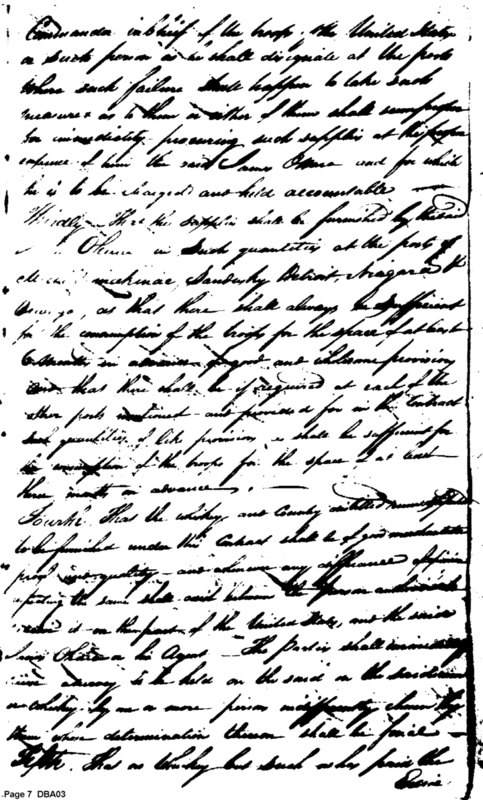 Commander in Chief of the troops of the United States
or such person as he shall designate at the posts
where such failure shall happen to take such
measures as to them or either of them shall seem proper
for immediately procuring such supplies at the proper
expence of him the said James OHara and for which
he is to be charged and held accountable
Thirdly That the supplies shall be furnished by the said
OHara in such quantities at the posts of
Michilimackinac, Sandusky Detroit, Niagara &
Oswego, as that there shall always be sufficient
for the consumption of the troops for the space of at least
months in advance of good and wholesome provision
and that there shall be if required at each of the
other posts mentioned and provided for in this Contract
such quantities of like provision as shall be sufficient for
the consumption of the troops for the space of at least
three months in advance.
Fourth. That the whiskey and Country distilled rum
to be furnished under this Contract shall be of good merchantable
proof and quality and whenever any difference of opinion
respecting the same shall exist between the person authorised
on the part of the United States, and the said
James OHara or his Agent The parties shall immediately
cause a survey to be held on the said on the said rum
or whiskey by one or more person indifferently chosen by
them whose determination thereon shall be final
Fifth. That no Whiskey but such as has paid the
Excise
Page 7 DBA03